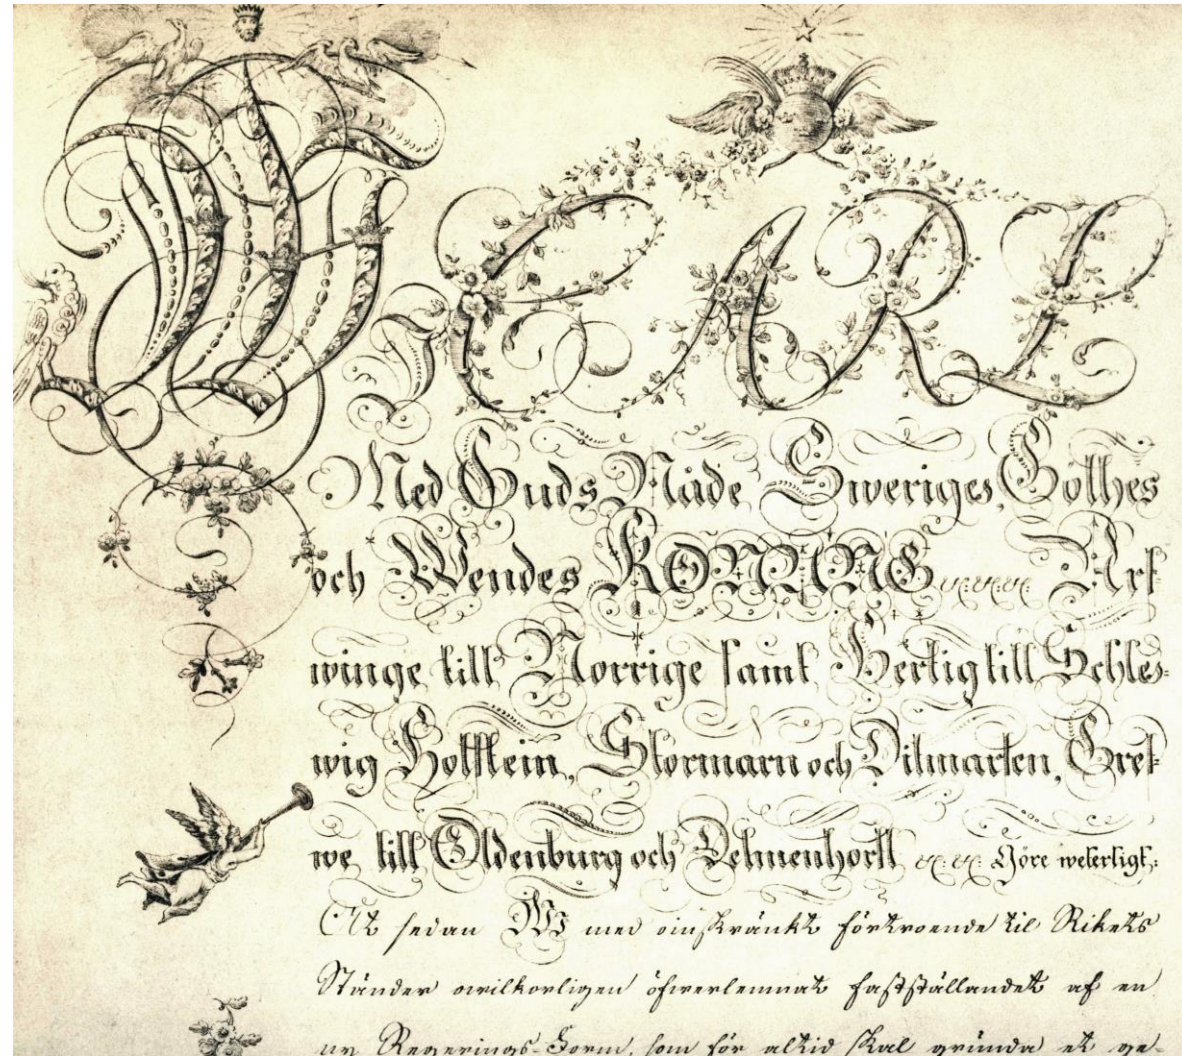 WI CARL
Med Guds Nåde, Sweriges, Göthes
och Wendes KONUNG &c. &c. &c. Arf-
winge till Norrige samt Hertig till Schles-
wig Holstein, Stormarn och Ditmarsen, Gref-
we till Oldenburg och Delmenhorst &c. &c. Göre weterligt:
At sedan Wi med oinskränkt förtroende til Rikets
Ständer owilkorligen öfwerlemnat fastställandet af en
ny Regerings-Form, som för altid skal grunda et ge-